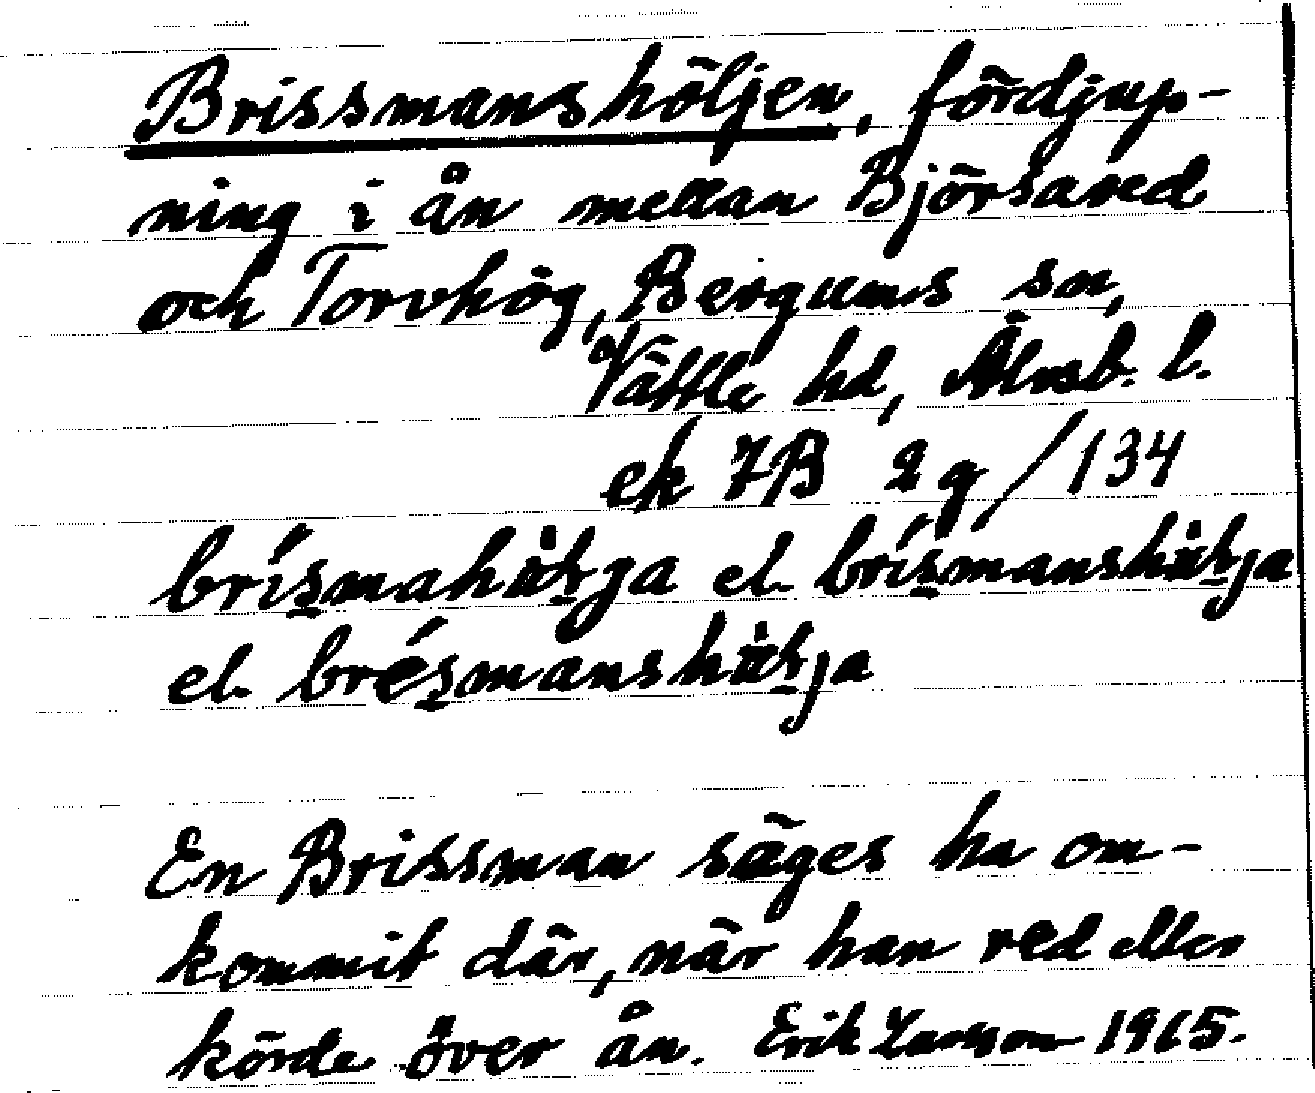 Brissmanshöljen, fördjup-
ning i ån mellan Björsared
och Torvhög, Bergums sn,
Vättle hd, Älvsb. l.
ek 7B 2g/134
brísmahu̇ḷja el. brísmanshu̇ḷja
el. brésmanshu̇ḷja
En Brissman säges ha om-
kommit där, när han red eller
körde över ån. Erik Larsson 1965.